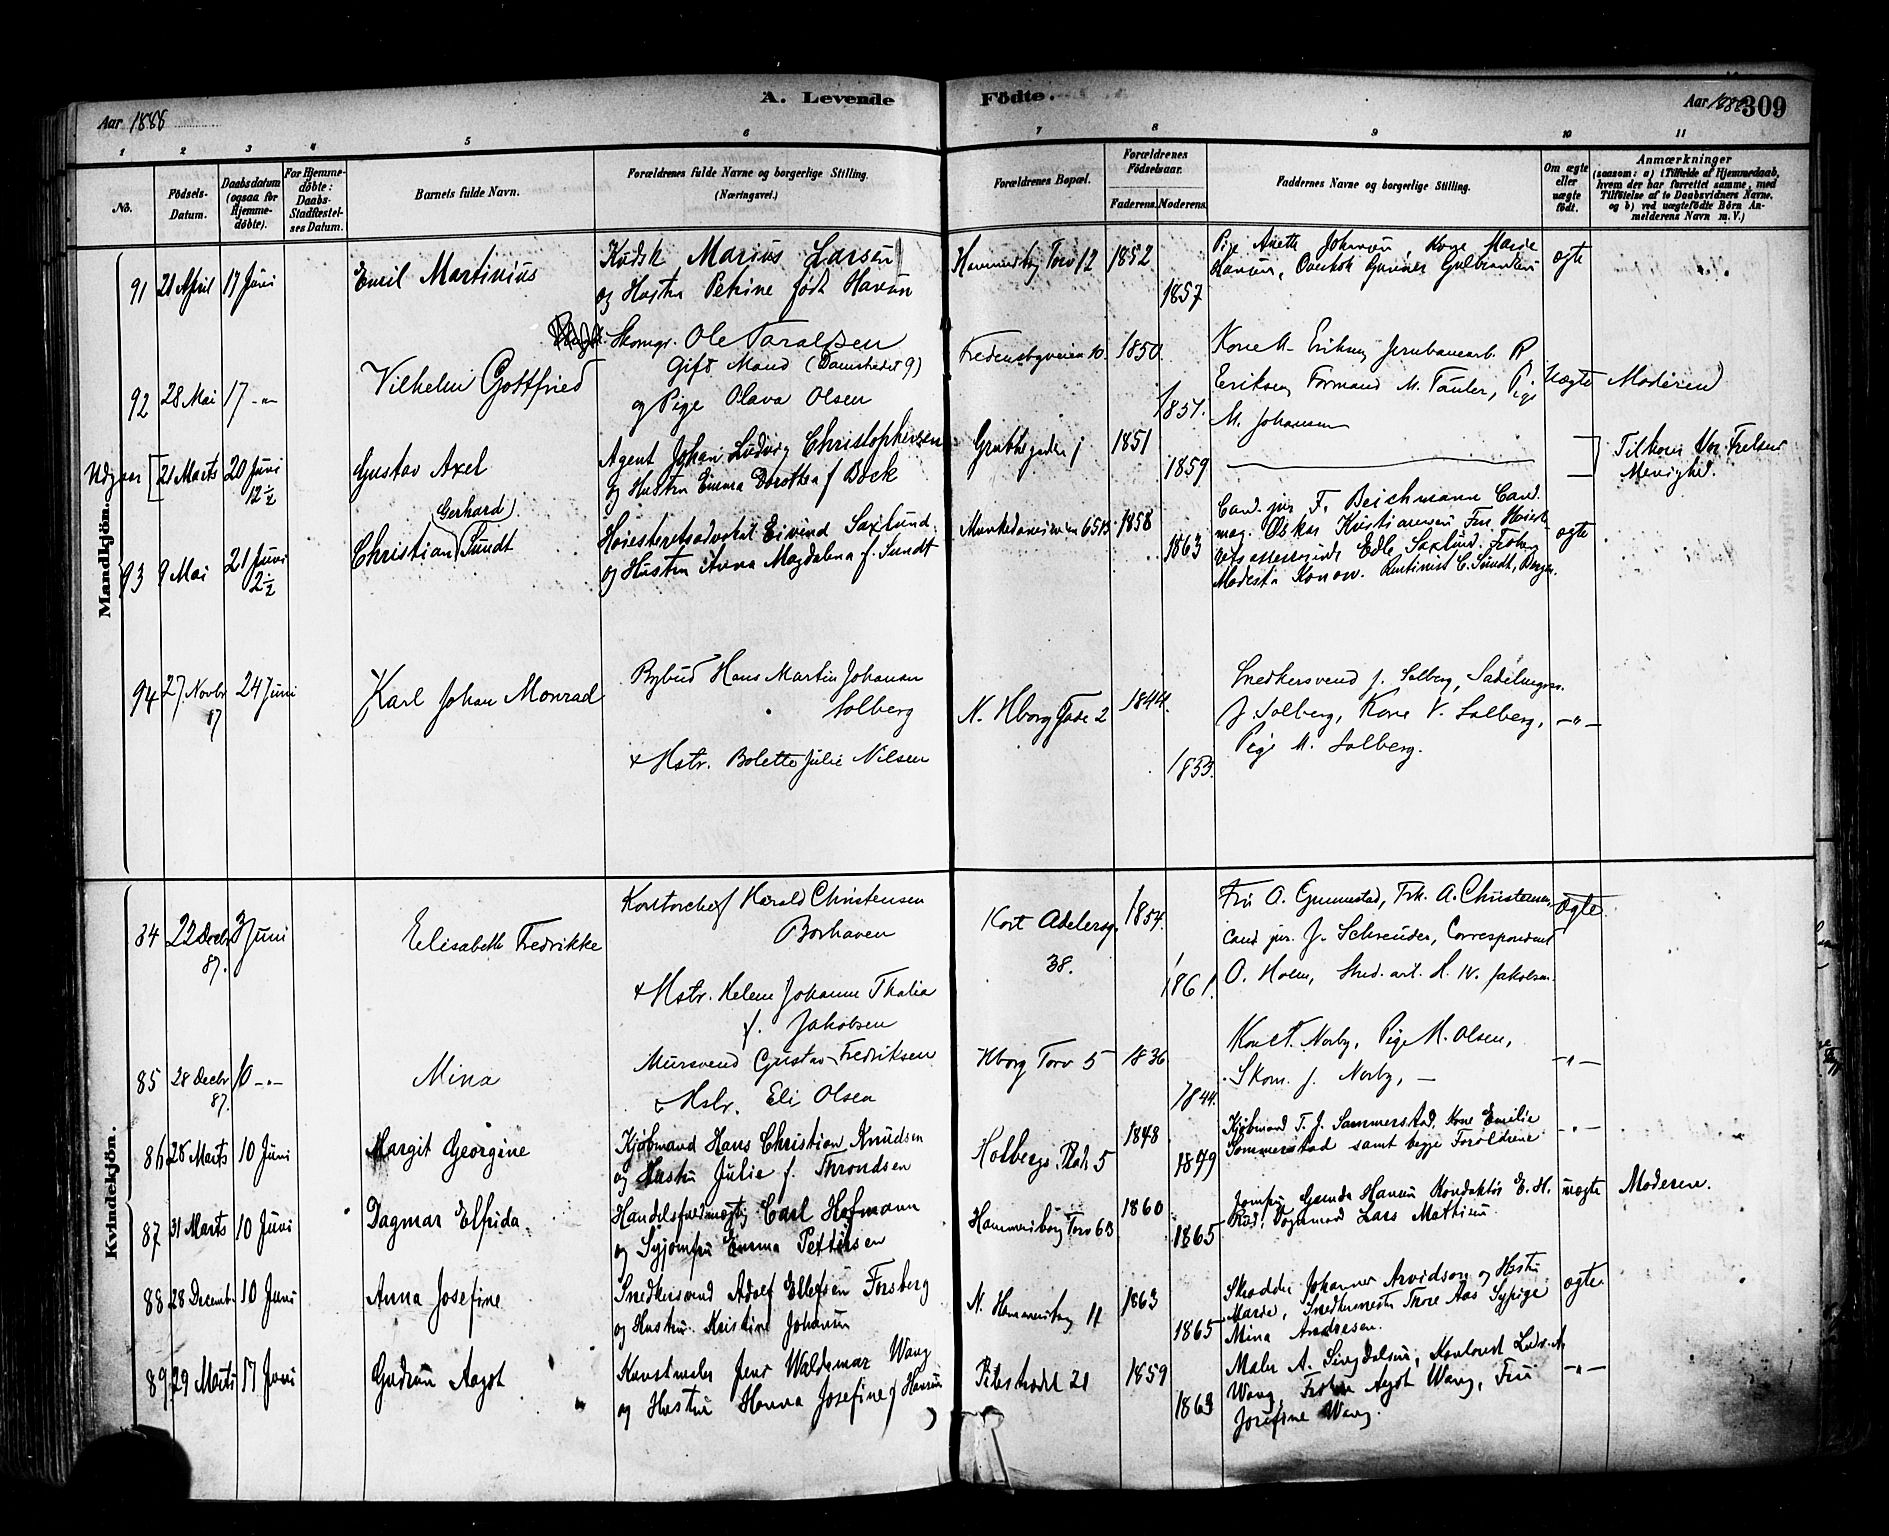 A. Levende Födte.
Aar 1888
Aar 1888 309
1 2 3 4 5 6 7 8 9 10 11
No.
Födsels-Datum.
Daabsdatum (ogsaa for Hjemme-döbte).
For Hjemme-döbte: Daabs-Stadfæstel-ses Datum.
Barnets fulde Navn.
Forældrenes fulde Navne og borgerlige Stilling. (Næringsvei.)
Forældrenes Bopæl.
Forældrenes Födselsaar.
Faderens. Moderens.
Faddernes Navne og borgerlige Stilling.
Om ægte eller uægte födt.
Anmærkninger
(saasom: a) i Tilfælde af Hjemmedaab, hvem der har forrettet samme, med Tilföielse af to Daabsvidners Navne, og b) ved uægtefödte Börn An-melderens Navn m. V.)
Mandkjön.
91 21 April 17 Juni Emil Martinius
Kudsk Marius Larsen
og Hustru Petrine født Hansen
Hammersborg Torv 12 1852 1857
Pige Anette Johnsen, Kone Marie
Hansen, Gunner Gulbrandsen
ægte
92 28 Mai 17 -"- Vilhelm Gottfried
Skomgr. Ole Taraldsen
Gift Mand (Damstrædet 9)
og Pige Olava Olsen
Fredensbyveien 10. 1850. 1851.
Kone M. Eriksen Jernbanearb. P.
Eriksen Formand M. Tauler, Pige
M. Johansen
Uægte Moderen
Udgaar 21 Marts 20 Juni 12½ Gustav Axel
Agent Johan Ludvig Christophersen
og Hustru Emma Dorothea f Bock
Grubbegaden 1 1851 1859
Tilhører Vor Frelsers
Menighed.
93 9 Mai 21 Juni 2½ Christian Gerhard Sundt
Høiesteretsadvokat Eivind Saxlund
og Hustru Anna Magdalena f. Sundt
Munkedamsveien 65 B 1858 1863
Cand. jur. F. Beichmann Cand.
mag. Oskar Kristiansen Fru Høieste-
retsassessorinde Edle Saxlund. Frøken
Modesta Konow. Rentinist C. Sundt, Bergen.
ægte
94 27. Novbr 87 24 Juni Karl Johan Monrad
Bybud Hans Martin Johansen
Solberg
+ Hstr. Bolette Julie Nilsen
N. Hborg Gade 2 1844. 1853.
Snedkersvend J. Solberg, Sadelmagersv.
J. Solberg, Kone V. Solberg,
Pige M. Solberg.
-"-
Kvindekjön.
84 22 Decbr 87. 3 Juni Elisabeth Fredrikke
Kontorchef Harald Christensen
Borhaven
+ Hstr. Helene Johanne Thalia
f. Jakobsen
Kort Adelersg.
38.
1854. 1861.
Fru O. Grimmstad, Frk. A. Christensen,
cand jur. J. Schreuder, Correspondent
O. Holm, Stud. art. H. W. Jakobsen.
Ægte.
85 28 Decbr 87. 10 -"- Mina
Mursvend Gustav Fredriksen
+ Hstr. Eli Olsen
Hborg Torv 5 1836 1844.
Kone A. Norby, Pige M. Olsen,
Skom. J. Norby, —
-"-
86 28 Marts 10 Juni Margit Georgine
Kjøbmand Hans Christian Knudsen
og Hustru Julie f. Throndsen
Holbergs Plads 5 1848 1849
Kjøbmand T. J. Sommerstad, Kone Emilie
Sommerstad samt begge Forældrene
-"-
87 31 Marts 10 Juni Dagmar Elfrida
Handelsfuldmægtig Carl Hofmann
og Syjomfru Emma Pettersen
Hammersborg Torv 6 B 1860 1865
Jomfru Gunda Hansen Konduktør E. H.
Rud, Vognmand Lars Mathisen.
uægte Moderen.
88 28 Decemb. 10 Juni Anna Josefine
Snedkersvend Adolf Ellefsen Forsberg
og Hustru Kristine Johansen
N. Hammersborg 11 1863 1865
Skrædder Johannes Arvidson og Hustru
Marie, Snedkermester Thore Aas Sypige
Mina Andresen.
ægte
89 29 Marts 17 Juni Gudrun Aagot
Kunstmaler Jens Waldemar Wang
og Hustru Hanna Josefine f Hansen
Pilestrædet 21 1859 1863
Maler A. Singdalsen, Ludv. A.
Wang, Frøken Aagot Wang, Fru
Josefine Wang.
-"-